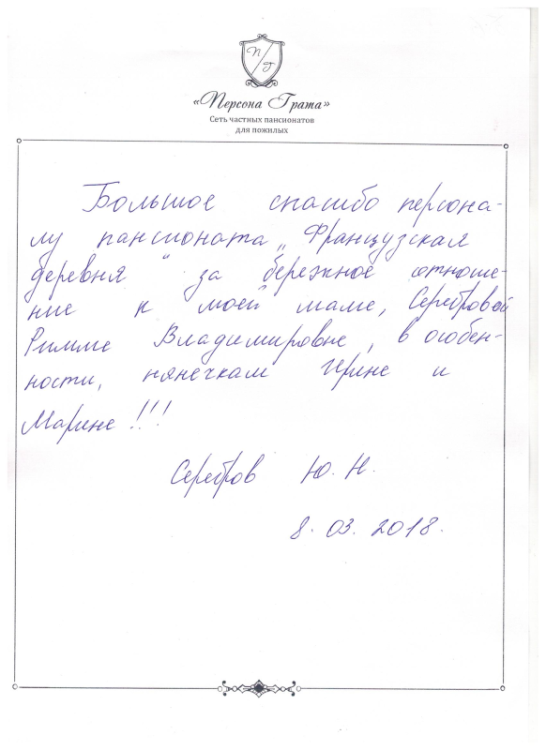 П/Г
«Персона Грата»
Сеть частных пансионатов
для пожилых
Большое спасибо персона-
лу пансионата „Французская
деревня“ за бережное отноше-
ние к моей маме, Серебровой
Римме Владимировне, в особен-
ности, нянечкам Ирине и
Марине!!!
Серебров Ю.Н.
8.03.2018.